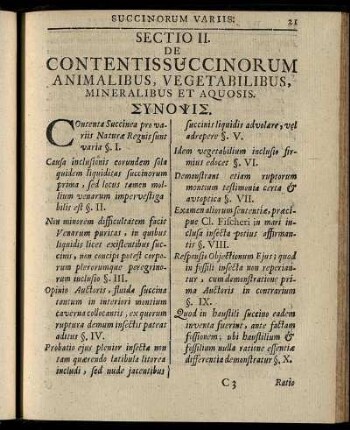 SUCCINORUM VARIIS. 21
SECTIO II.
DE
CONTENTIS SUCCINORUM
ANIMALIBUS, VEGETABILIBUS,
MINERALIBUS ET AQUOSIS.
ΣΥΝΟΨΙΣ.
COntenta Succinea pro va-
riis Naturæ Regnis sunt
varia §. I.
Causa inclusionis eorundem sola
quidem liquiditas succinorum
prima, sed locus tamen mol-
lium venarum impervestiga-
bilis est §. II.
Non minorem difficultatem facit
Venarum puritas, in quibus
liquidis licet existentibus suc-
cinis, non concipi potest corpo-
rum plerorumque peregrino-
rum inclusio §. III.
Opinio Auctoris, fluida succina
tantum in interiori montium
caverna collocantis, ex quorum
ruptura demum insectis pateat
aditus §. IV.
Probatio ejus plenior insecta mu-
tam quærendo latibula litorea
includi, sed nude jacentibus
succinis liquidis advolare, vel
adrepere §. V.
Idem vegetabilium inclusio fir-
mius edocet §. VI.
Demonstrant etiam ruptorum
montium testimonia certa &
autoptica §. VII.
Examen aliorum sententiæ, præci-
pue Cl. Fischeri in mari in-
clusa insecta potius affirman-
tis §. VIII.
Responsis Objectionum Ejus; quod
in fossili insecta non reperian-
tur, cum demonstratione pri-
ma Auctoris in contrarium
§. IX.
Quod in haustili succino eadem
inventa fuerint, ante factam
fissionem; ubi haustilium &
fossilium nulla ratione essentiæ
differentia demonstratur §. X.
C 3 Ratio